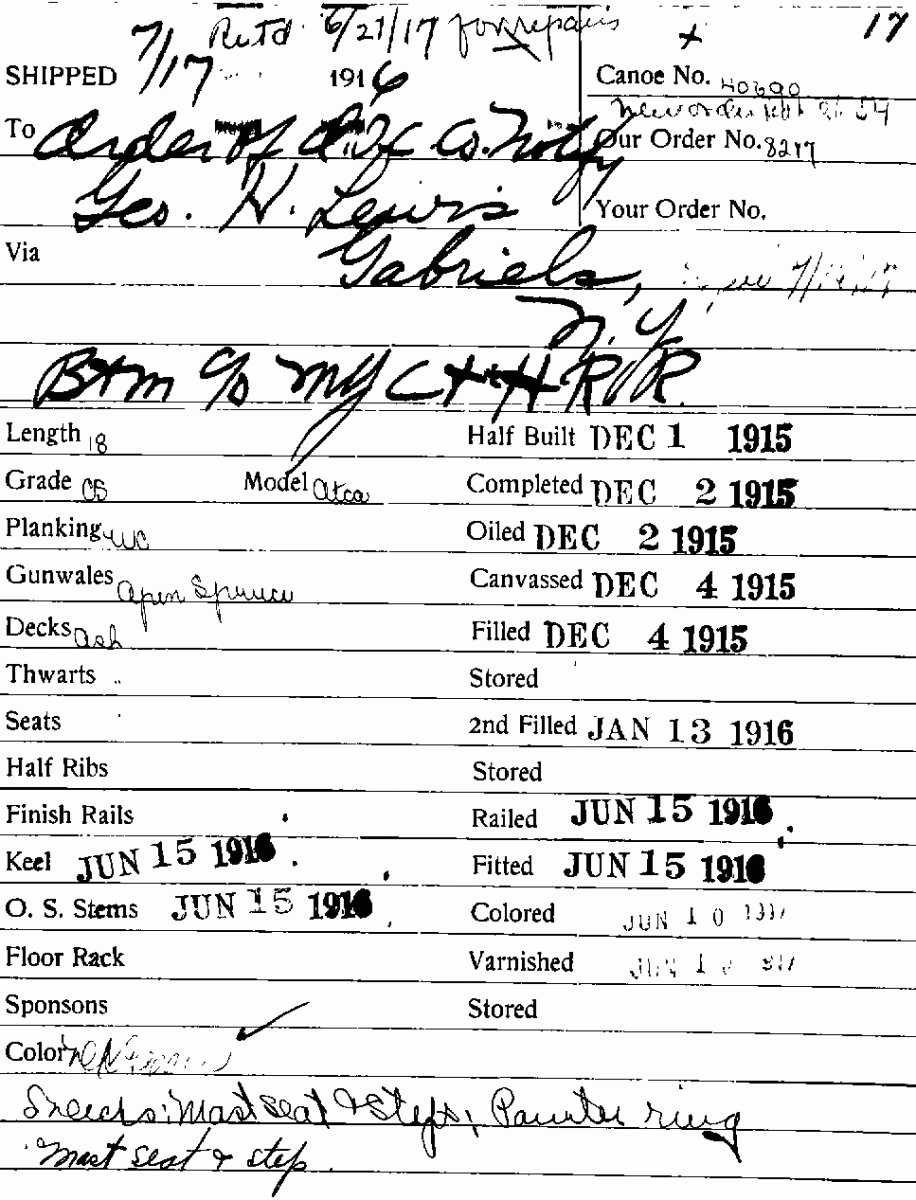 Retd 6/21/17 for repairs
+
17
SHIPPED 7/17 1916
Canoe No. 40290
new order
To Order of O.T. C Co. Notify
Our Order No. 8217
Geo. H. Lewis
Your Order No.
Via Gabriels,
N.Y.
B+m c/o my C + H R RR.
Length 18
Half Built DEC 1 1915
Grade CS Model Otca
Completed DEC 2 1915
Planking WC
Oiled DEC 2 1915
Gunwales Open Spruce
Canvassed DEC 4 1915
Decks Ash
Filled DEC 4 1915
Thwarts ..
Stored
Seats
2nd Filled JAN 13 1916
Half Ribs
Stored
Finish Rails
Railed JUN 15 1916
Keel JUN 15 1916
Fitted JUN 15 1916
O. S. Stems JUN 15 1916
Colored JUN 10
Floor Rack
Varnished JUN
Sponsons
Stored
Color
Mast seat & step; Painter ring
Mast seat & step.